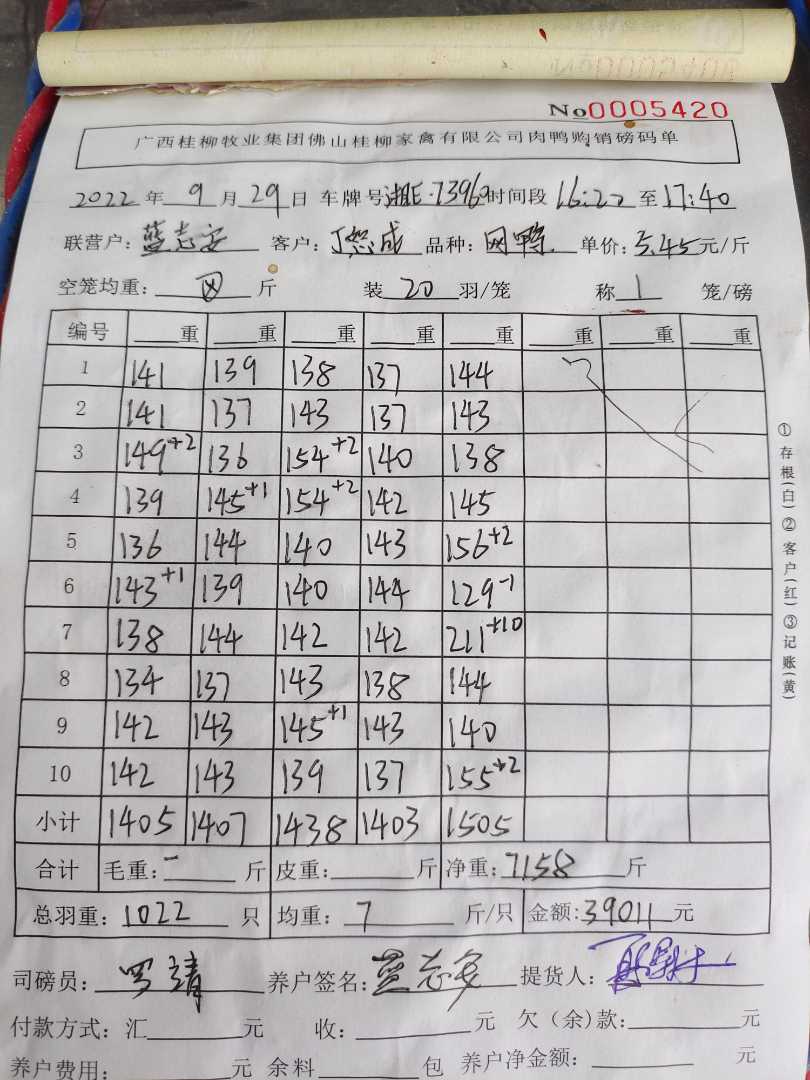 No 0005420
广西桂柳牧业集团佛山桂柳家禽有限公司肉鸭购销磅码单
2022 年 9 月 29 日 车牌号 湘E·73960 时间段 16:22 至 17:40
联营户: 蓝志安 客户: 丁恕成 品种: 网鸭 单价: 5.45 元/斤
空笼均重: 斤 装 20 羽/笼 称 1 笼/磅
编号 重 重 重 重 重 重 重 重
1 141 139 138 137 144
2 141 137 143 137 143
3 149+2 136 154+2 140 138
4 139 145+1 154+2 142 145
5 136 144 140 143 156+2
6 143+1 139 140 144 129-1
7 138 144 142 142 211+10
8 134 137 143 138 144
9 142 143 145+1 143 140
10 142 143 139 137 155+2
小计 1405 1407 1438 1403 1505
合计 毛重: 斤 皮重: 斤 净重: 7158 斤
总羽重: 1022 只 均重: 7 斤/只 金额: 39011 元
司磅员: 罗靖 养户签名: 蓝志安 提货人:
付款方式: 汇 元 收: 元 欠(余)款: 元
养户费用: 元 余料 包 养户净金额: 元
①存根(白)②客户(红)③记账(黄)